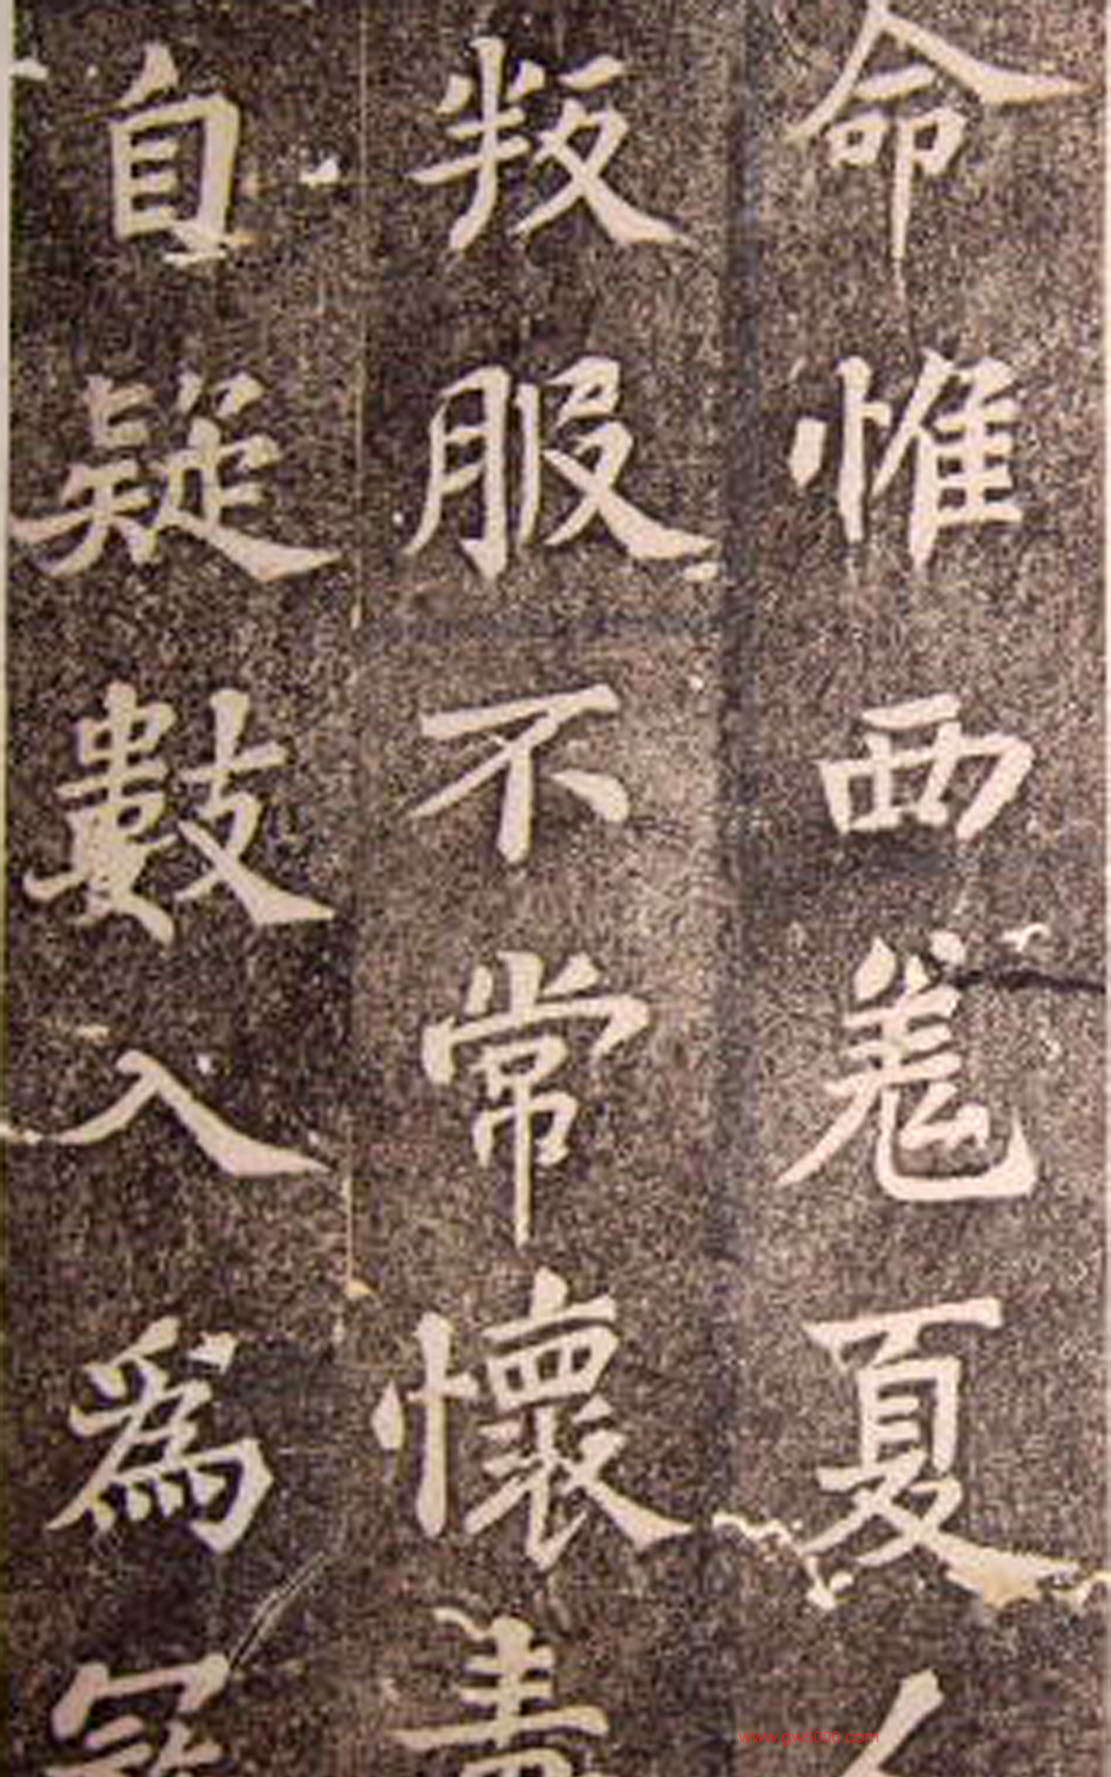 命惟西羌夏人
叛服不常懷毒
自疑數入為寇
www.gw8000.com